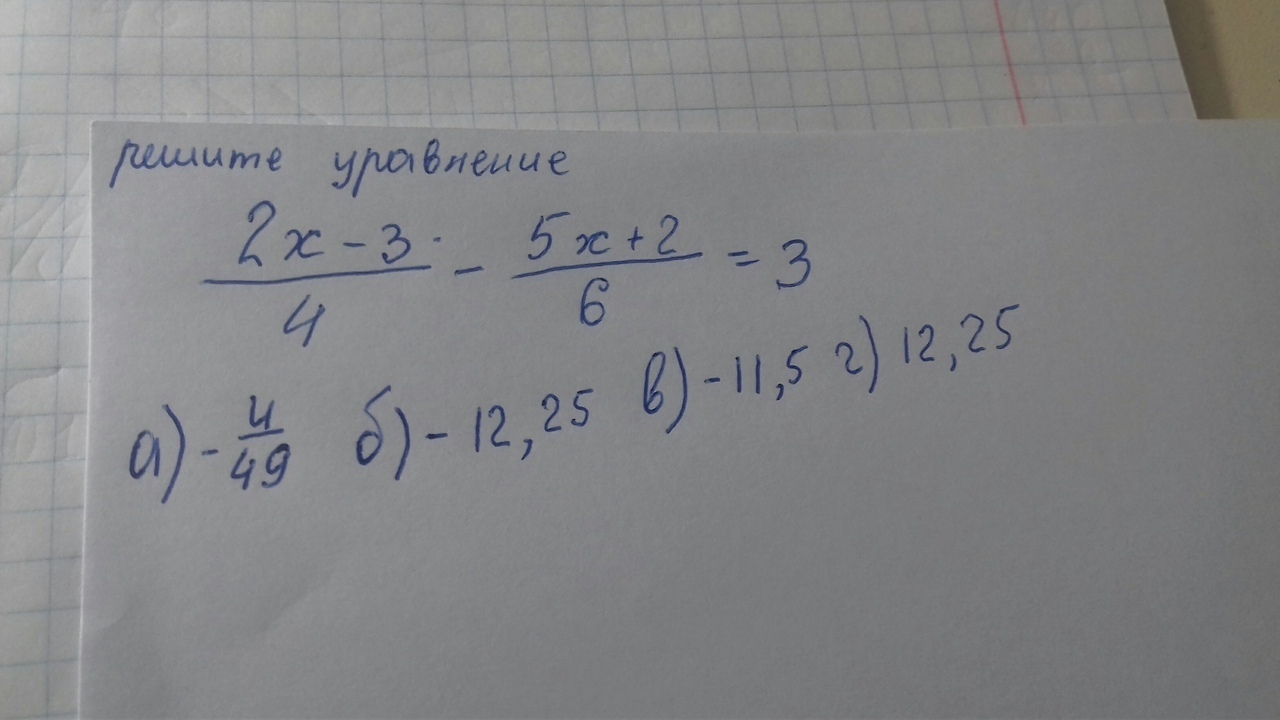 решите уравнение
(2x - 3)/4 - (5x + 2)/6 = 3
а) - 4/49 б) - 12,25 в) - 11,5 г) 12,25